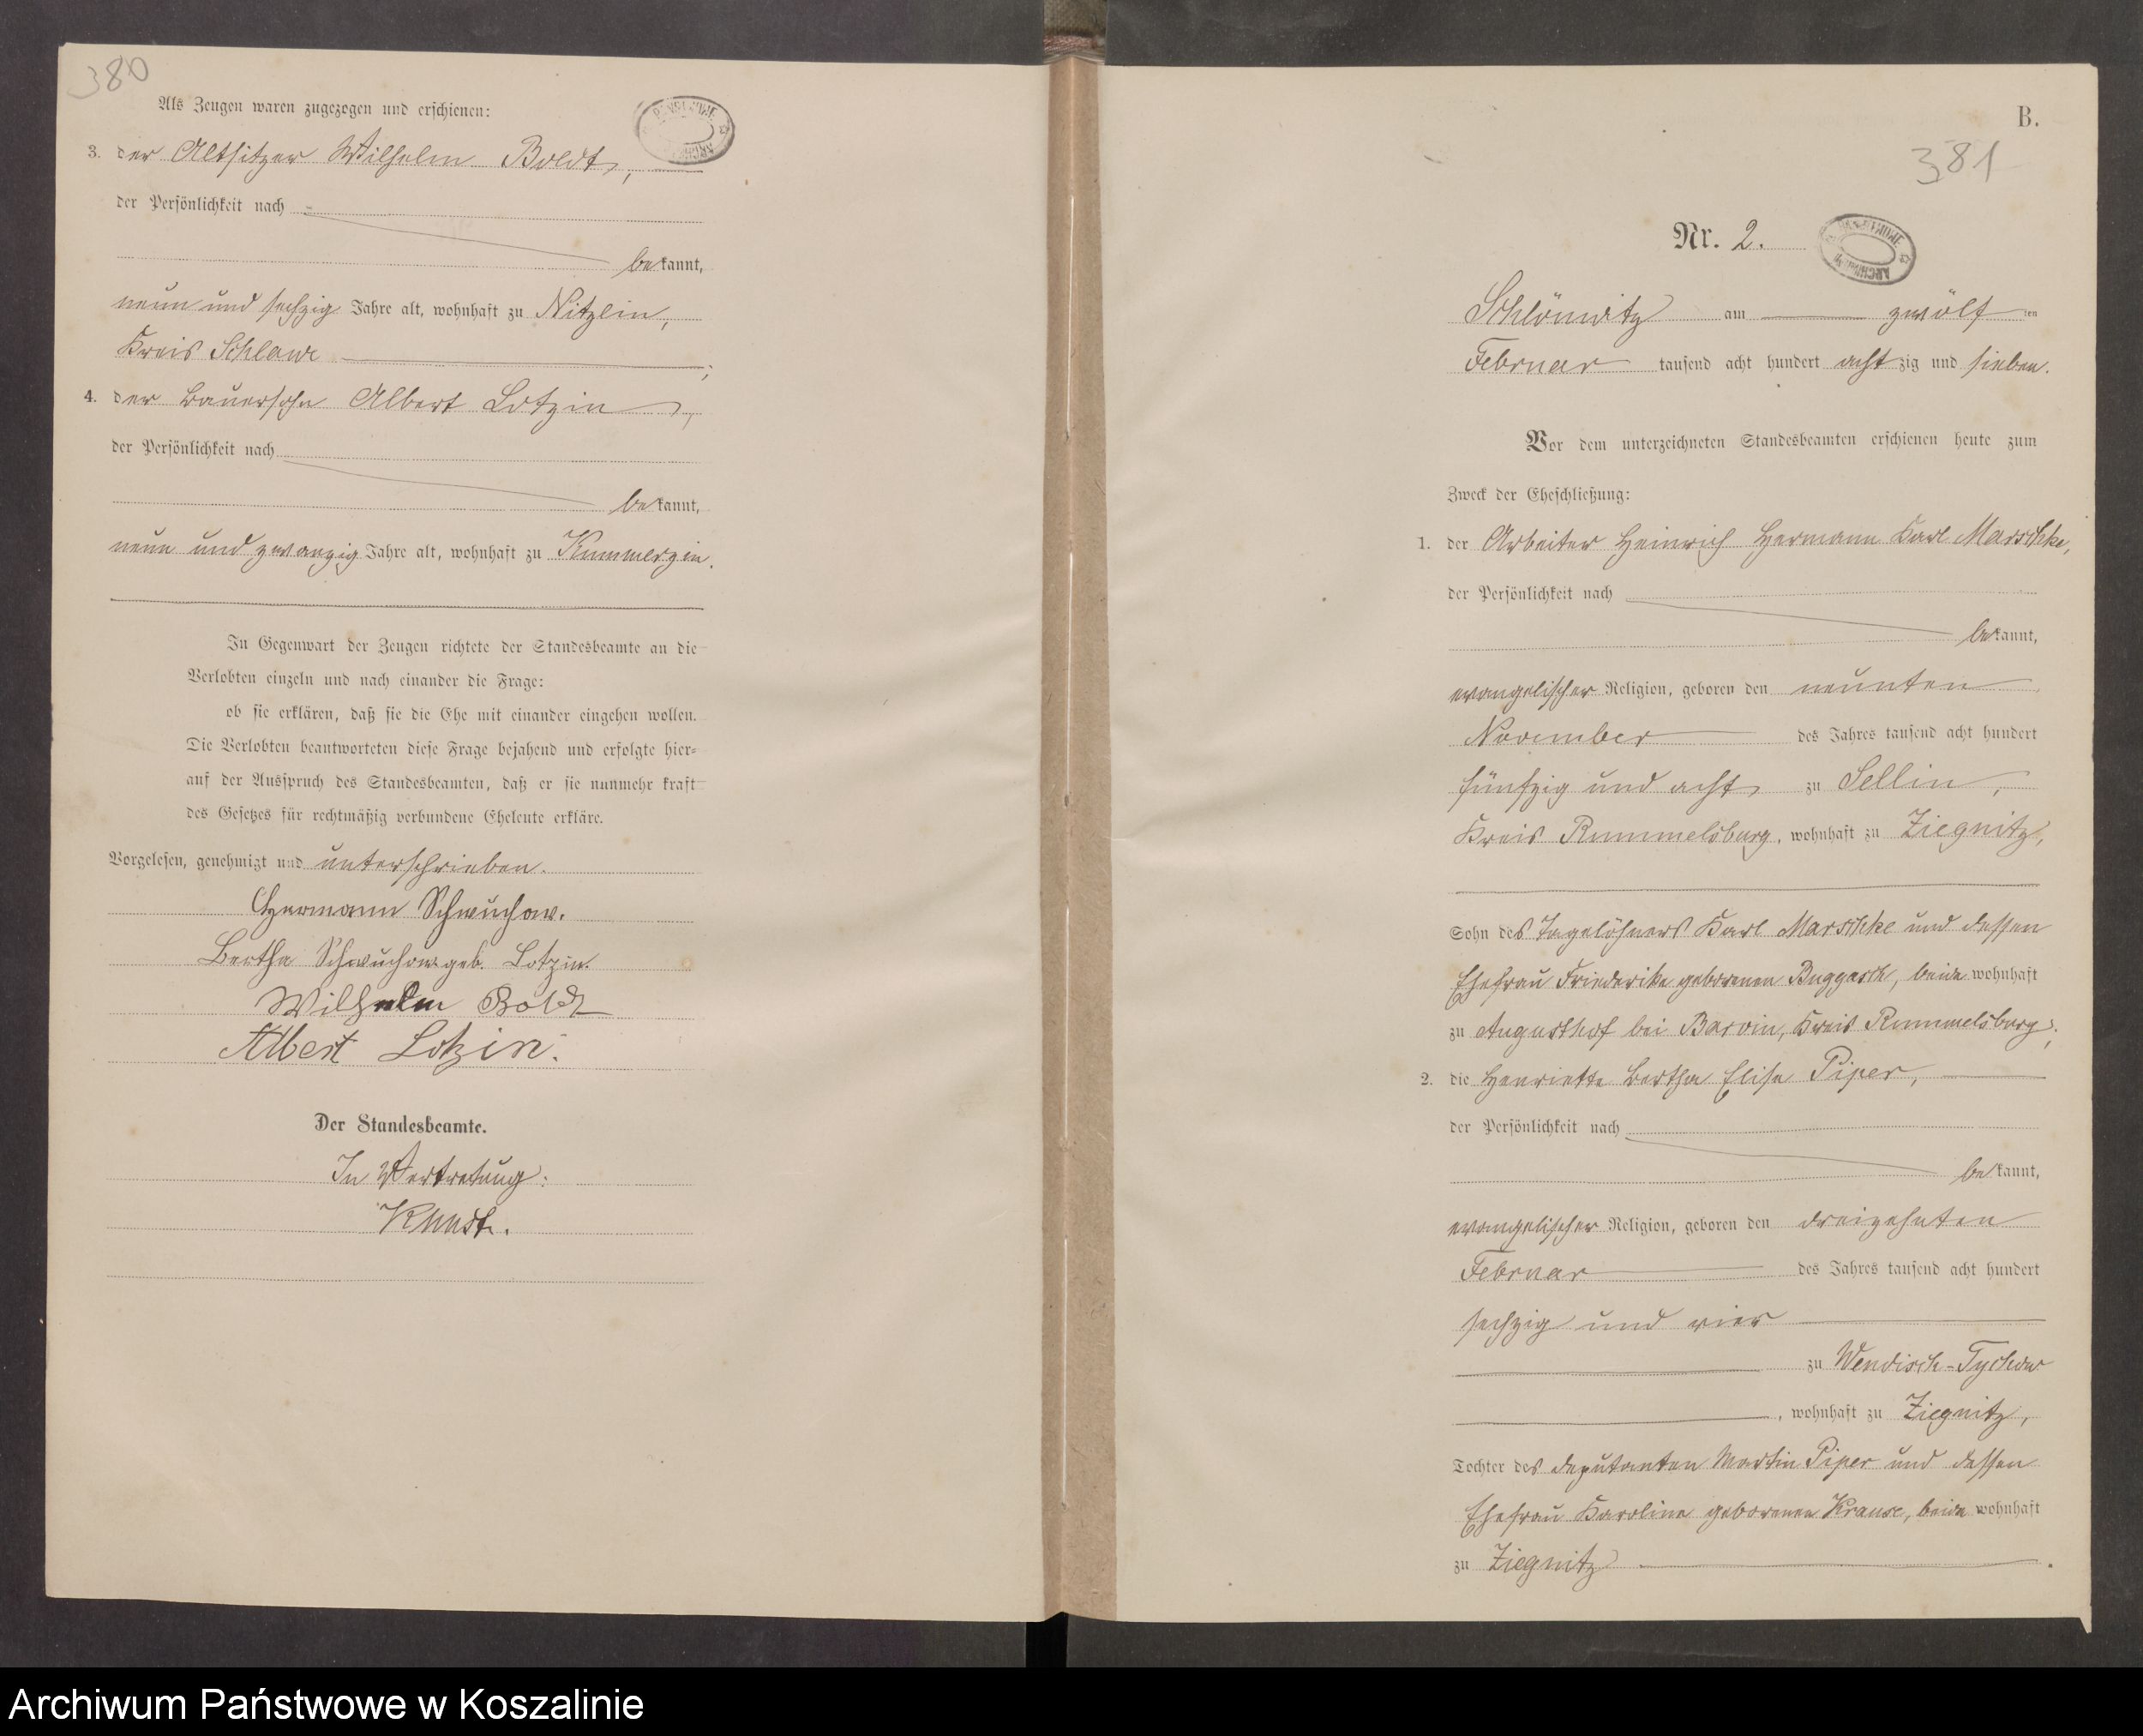 380
Als Zeugen waren zugezogen und erschienen:
3. der Altsitzer Wilhelm Boldt,
der Persönlichkeit nach
bekannt,
neun und sechzig Jahre alt, wohnhaft zu Nitzlin,
Kreis Schlawe;
4. der Bauersohn Albert Lotzin,
der Persönlichkeit nach
bekannt,
neun und zwanzig Jahre alt, wohnhaft zu Kummerzin.
In Gegenwart der Zeugen richtete der Standesbeamte an die
Verlobten einzeln und nach einander die Frage:
ob sie erklären, daß sie die Ehe mit einander eingehen wollen.
Die Verlobten beantworteten diese Frage bejahend und erfolgte hier-
auf der Ausspruch des Standesbeamten, daß er sie nunmehr kraft
des Gesetzes für rechtmäßig verbundene Eheleute erkläre.
Vorgelesen, genehmigt und unterschrieben.
Hermann Schwuchow.
Bertha Schwuchow geb. Lotzin.
Wilhelm Boldt
Albert Lotzin.
Der Standesbeamte.
In Vertretung:
Kunst.
B.
381
Nr. 2.
Schlönwitz am zwölften
Februar tausend acht hundert achtzig und sieben.
Vor dem unterzeichneten Standesbeamten erschienen heute zum
Zweck der Eheschließung:
1. der Arbeiter Heinrich Hermann Karl Marschke,
der Persönlichkeit nach
bekannt,
evangelischer Religion, geboren den neunten
November des Jahres tausend acht hundert
fünfzig und acht zu Sellin,
Kreis Rummelsburg, wohnhaft zu Ziegnitz,
Sohn des Tagelöhners Karl Marschke und dessen
Ehefrau Friederike geborenen Buggasch, beide wohnhaft
zu Augusthof bei Barvin, Kreis Rummelsburg;
2. die Henriette Bertha Elise Piper,
der Persönlichkeit nach
bekannt,
evangelischer Religion, geboren den dreizehnten
Februar des Jahres tausend acht hundert
sechzig und vier
zu Wendisch-Tychow
, wohnhaft zu Ziegnitz,
Tochter des Deputanten Martin Piper und dessen
Ehefrau Karoline geborenen Krause, beide wohnhaft
zu Ziegnitz.
Archiwum Państwowe w Koszalinie